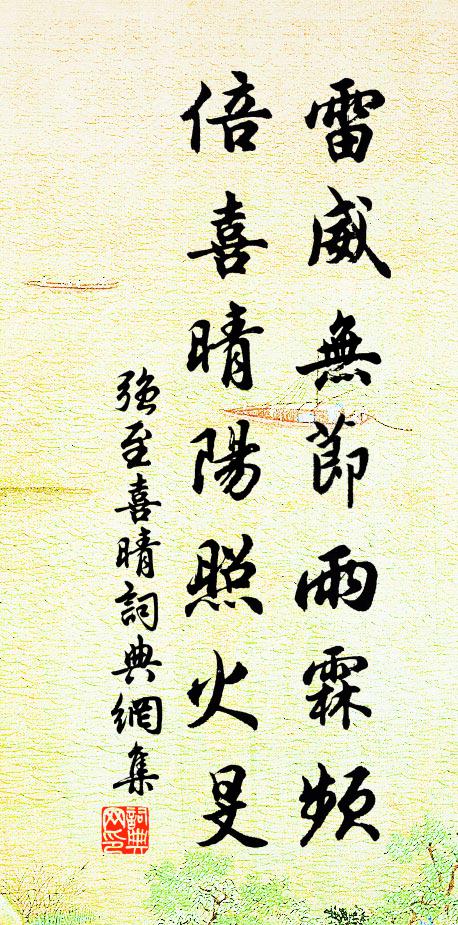 雷威無節雨霖頻
倍喜晴陽照火旻
強至喜晴詞典網集
詞典網印